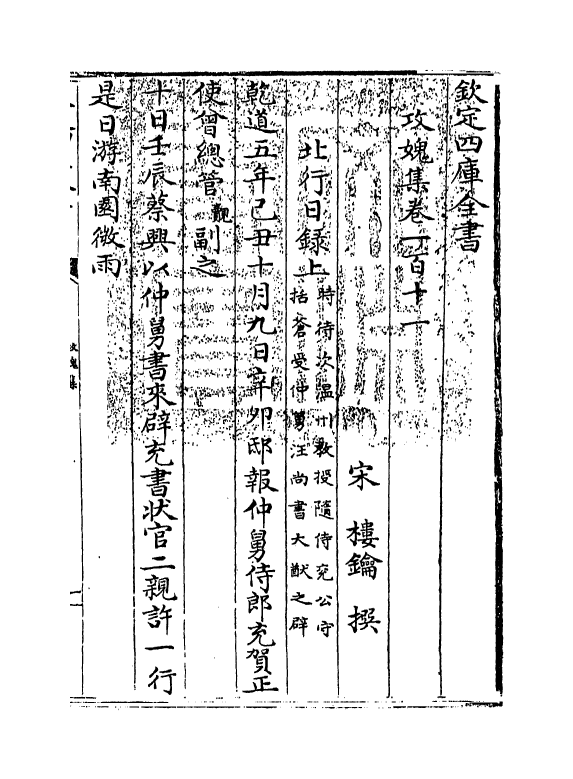 欽定四庫全書
攻媿集卷一百十一
宋 樓鑰 撰
北行日錄上
時待次温州教授隨侍兖公守
括蒼受仲舅汪尚書大猷之辟
乾道五年己丑十月九日辛卯邸報仲舅侍郎充賀正
使曾總管覿副之
十日壬辰蔡興以仲舅書來辟充書狀官二親許一行
是日游南園微雨
攻媿集
一